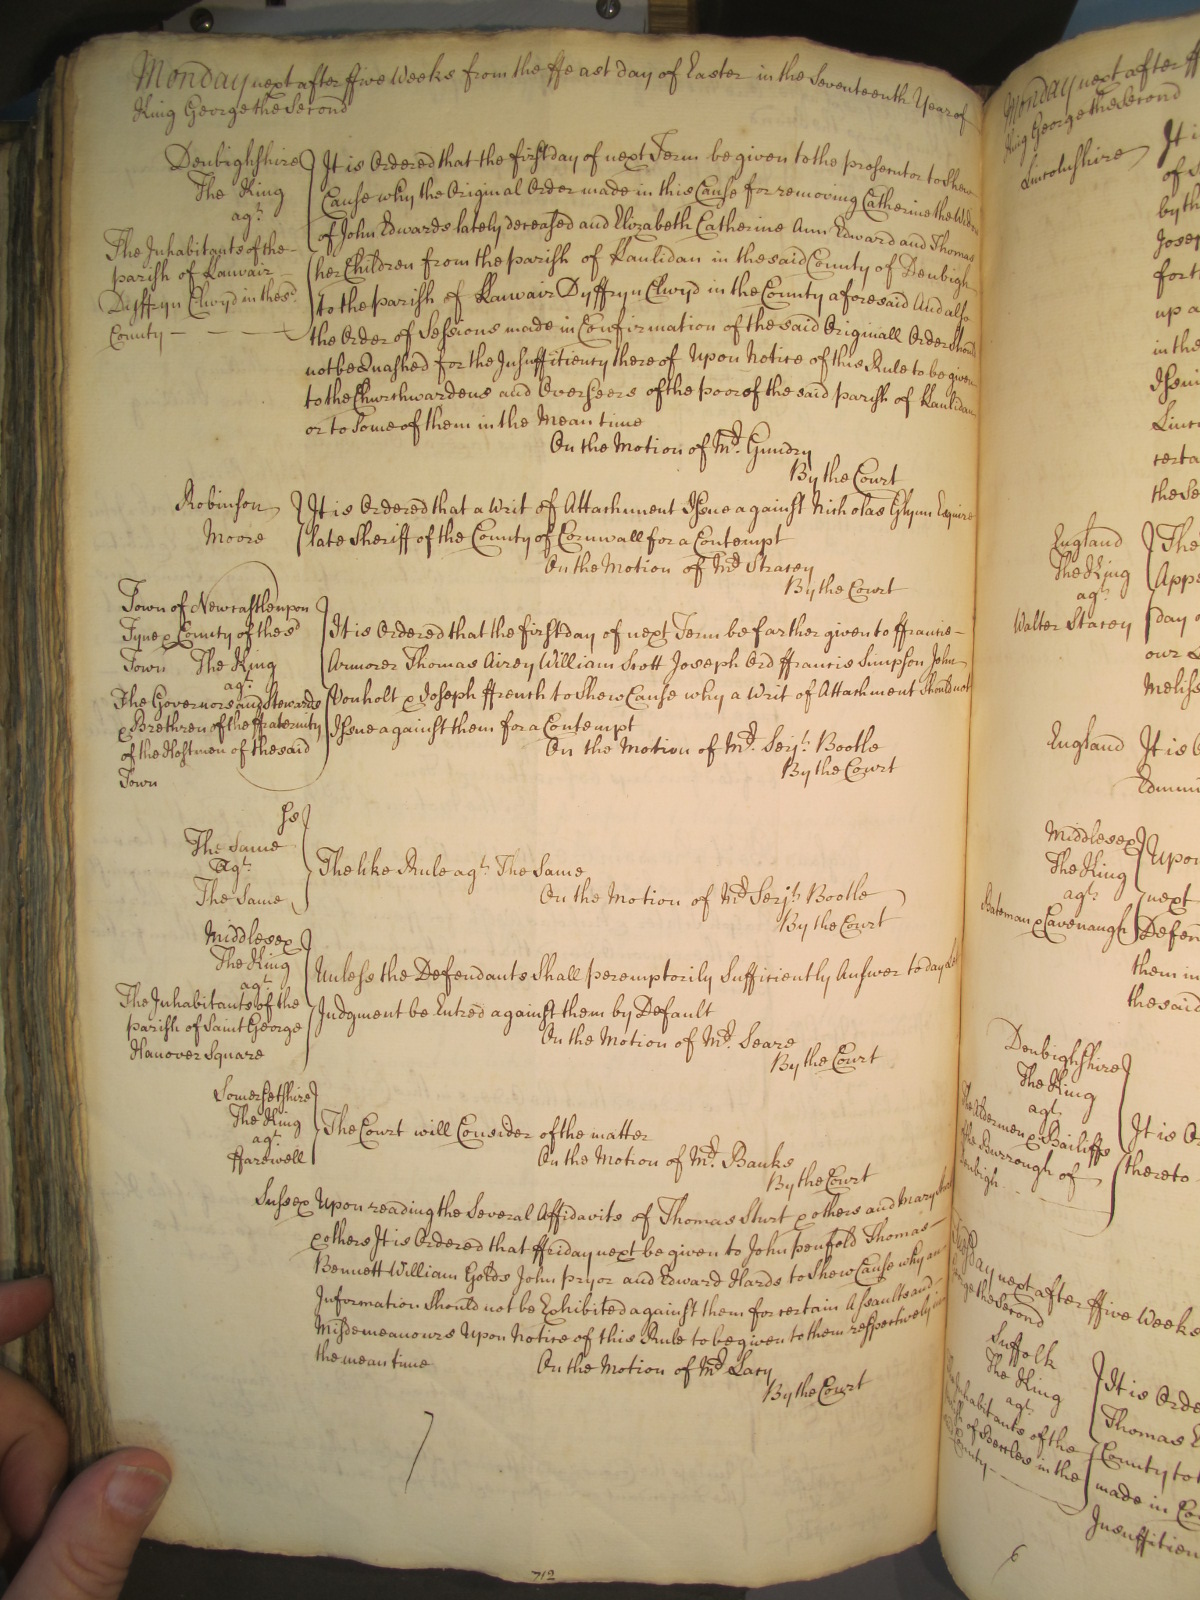 Monday next after ffive Weeks from the ffeast day of Easter in the Seventeenth Year of
King George the Second
Denbighshire
The King
agt.
The Inhabitants of the
parish of Lanvair
Dyffryn Clwyd in the sd.
County
It is Ordered that the first day of next Term be given to the prosecutor to shew
Cause why the Original Order made in this Cause for removing Catherine the Widow
of John Edwards lately deceased and Elizabeth Catherine Ann Edward and Thomas
her Children from the parish of Lanlidan in the said County of Denbigh
to the parish of Lanvair Dyffryn Clwyd in the County aforesaid And also
the Order of Sessions made in Confirmation of the said Originall Order should
not be Quashed for the Insufficiency thereof Upon Notice of this Rule to be given
to the Churchwardens and Overseers of the poor of the said parish of Lanlidan
or to some of them in the Mean time
On the Motion of Mr. Gundry
By the Court
Robinson
Moore
It is Ordered that a Writ of Attachment Issue against Nicholas Glynn Esquire
late Sheriff of the County of Cornwall for a Contempt
On the Motion of Mr Stracey
By the Court
Town of Newcastle upon
Tyne & County of the sd
Town The King
agt.
The Governors and Stewards
& Brethren of the ffraternity
of the Hostmen of the said
Town
It is Ordered that the first day of next Term be farther given to ffrancis
Armorer Thomas Airey William Scott Joseph Ord ffrancis Simpson John
Vonholt & Joseph ffrench to shew Cause why a Writ of Attachment should not
Issue against them for a Contempt
On the Motion of Mr. Serjt. Bootle
By the Court
ss
The Same
Agt.
The Same
The like Rule agt. The Same
On the Motion of Mr Serjt. Bootle
By the Court
Middlesex
The King
agt.
The Inhabitants of the
parish of Saint George
Hanover Square
Unless the Defendants Shall peremptorily Sufficiently Answer to day Let
Judgment be Entred against them by Default
On the Motion of Mr. Seare
By the Court
Somersetshire
The King
agt.
ffarewell
The Court will Consider of the matter
On the Motion of Mr. Banks
By the Court
Sussex Upon reading the Several Affidavits of Thomas Sturt & others and Mary
& others It is Ordered that ffriday next be given to John penfold Thomas
Bennett William Golds John pryor and Edward Hards to shew Cause why an
Information should not be Exhibited against them for certain Assaults and
Misdemeanours Upon Notice of this Rule to be given to them respectively in
the mean time
On the Motion of Mr Lacy
By the Court
7
712
Monday next after ff
King George the Second
Lincolnshire
It i
of S
by th
Josep
for t
up a
in the
Issui
Linco
certa
the Se
England
The King
agt.
Walter Stacey
The
Appe
day o
our
Meliss
England It is
Edmun
Middlesex
The King
agt.
Bateman & Cavenaugh
Upon
next
Defen
them in
the said
Denbighshire
The King
agt.
The Aldermen & Bailiffs
the Burrough of
Denbigh
It is O
thereto
Tuesday next after ffive Weeks
George the Second
Suffolk
The King
agt.
Inhabitants of the
parish of Beccles in the
County
It is Orde
Thomas
County to
made in Co
Insufficien
6